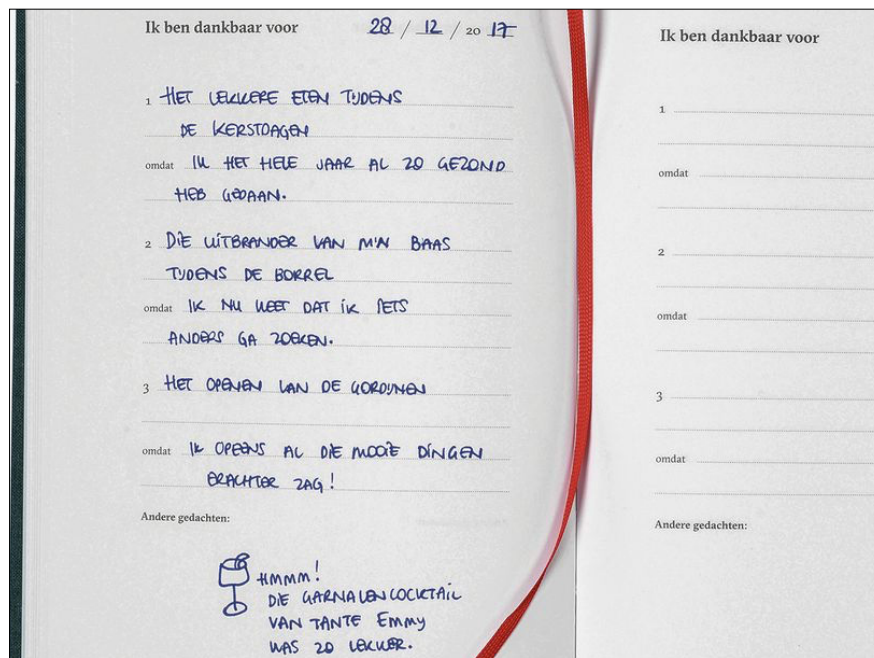 Ik ben dankbaar voor 28 / 12 / 20 17
1 HET LEKKERE ETEN TIJDENS
DE KERSTDAGEN
omdat IK HET HELE JAAR AL ZO GEZOND
HEB GEDAAN.
2 DIE UITBRANDER VAN M'N BAAS
TIJDENS DE BORREL
omdat IK NU WEET DAT IK IETS
ANDERS GA ZOEKEN.
3 HET OPENEN VAN DE GORDIJNEN
omdat IK OPEENS AL DIE MOOIE DINGEN
ERACHTER ZAG!
Andere gedachten:
HMMM!
DIE GARNALENCOCKTAIL
VAN TANTE EMMY
WAS ZO LEKKER.
Ik ben dankbaar voor
1
omdat
2
omdat
3
omdat
Andere gedachten: